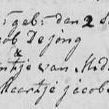 geb: den 2 S
ob Dejong
&
ntje van Mid
Maertje Jacob